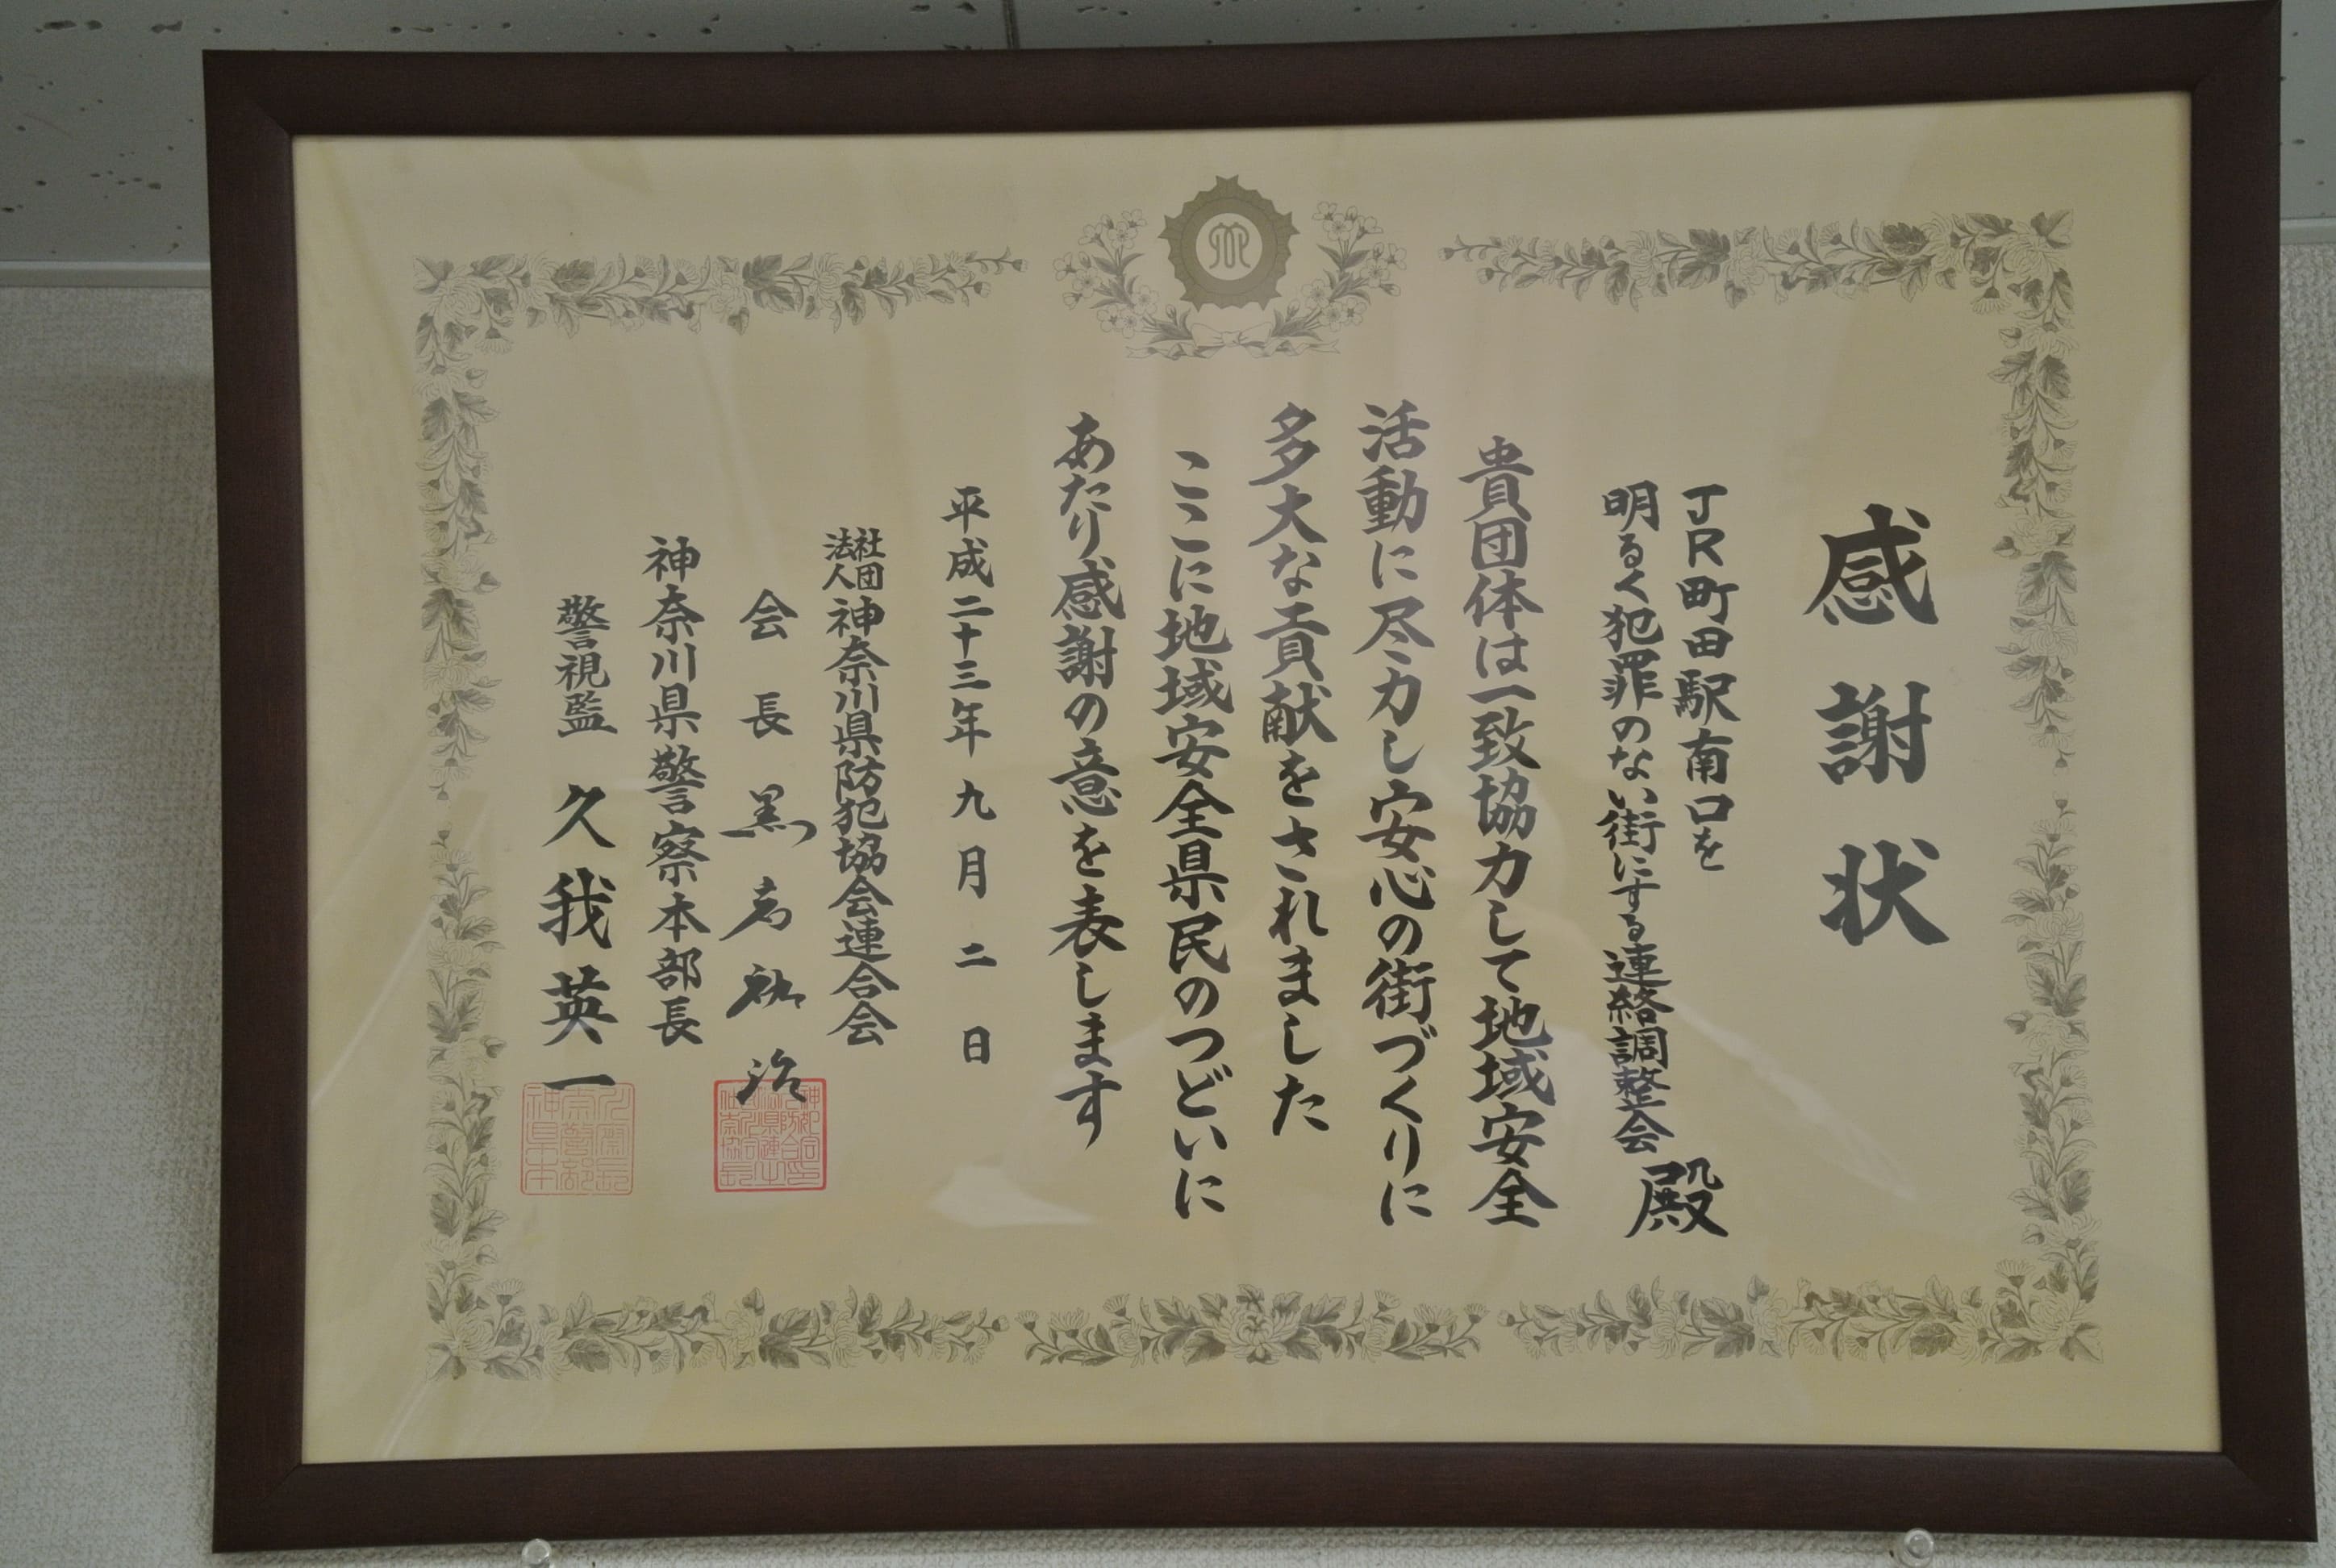 感謝状
JR町田駅南口を
明るく犯罪のない街にする連絡調整会
殿
貴団体は一致協力して地域安全
活動に尽力し安心の街づくりに
多大な貢献をされました
ここに地域安全県民のつどいに
あたり感謝の意を表します
平成二十三年九月二日
社団法人神奈川県防犯協会連合会
会長
神奈川県警察本部長
警視監 久我英一